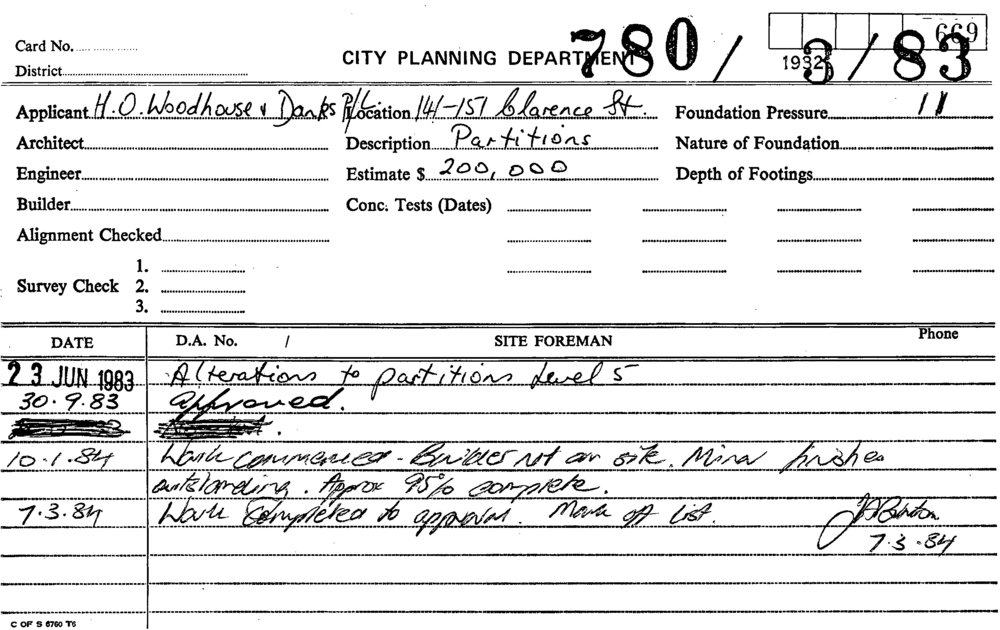 669
Card No.
CITY PLANNING DEPARTMENT 780/3/83
1932
District
Applicant H.O. Woodhouse & Danks P/L Location 141-151 Clarence St. Foundation Pressure 11
Architect Description Partitions Nature of Foundation
Engineer Estimate $ 200,000 Depth of Footings
Builder Conc. Tests (Dates)
Alignment Checked
1.
Survey Check 2.
3.
DATE D.A. No. / SITE FOREMAN Phone
23 JUN 1983 Alterations to partitions Level 5
30.9.83 approved.
10.1.84 Work commenced - Builder not on site. Minor finishes
outstanding. Approx 95% complete.
7.3.84 Work Completed to approval. Mark off list.
7.3.84
C OF S 6760 T6